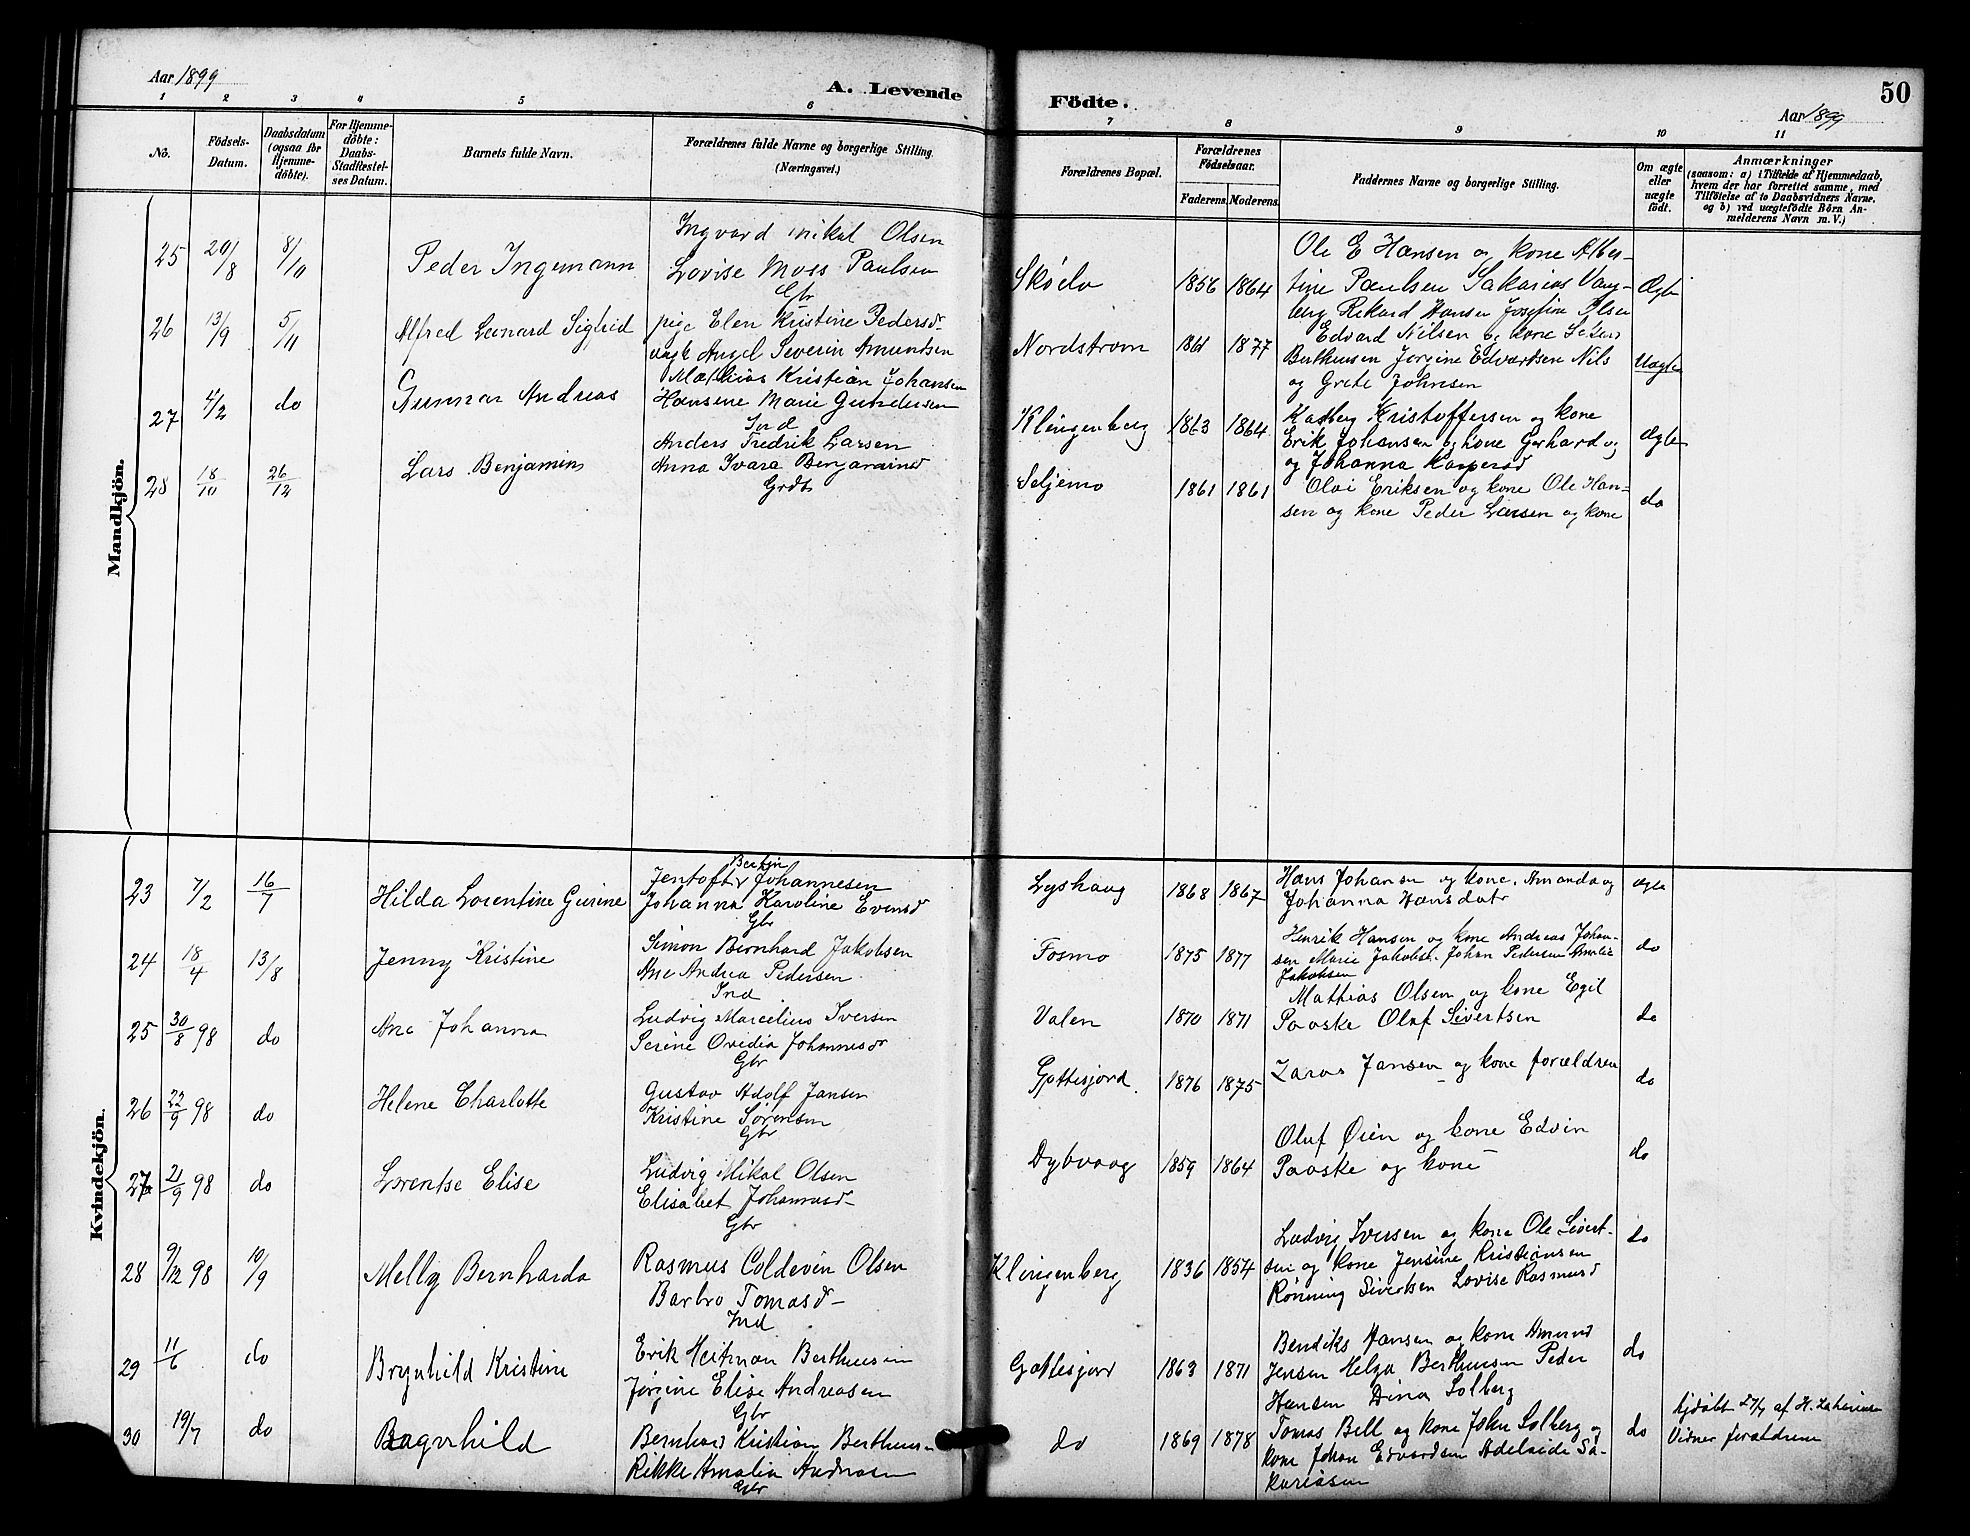 Aar 1899
A. Levende
Födte.
Aar 1899
50
1 2 3 4 5 6 7 8 9 10 11
No.
Födsels-Datum.
Daabsdatum (ogsaa for Hjemme-döbte).
For Hjemme-döbte: Daabs-Stadfæstel-ses Datum.
Barnets fulde Navn.
Forældrenes fulde Navne og borgerlige Stilling.
(Næringsvei.)
Forældrenes Bopæl.
Forældrenes Födselsaar.
Faderens. Moderens.
Faddernes Navne og borgerlige Stilling.
Om ægte eller uægte födt.
Anmærkninger
(saasom: a) i Tilfælde af Hjemmedaab,
hvem der har forrettet samme, med
Tilföielse af to Daabsvidners Navne,
og b) ved uægtefödte Börn An-
melderens Navn m. V.)
Mandkjön.
25 20/8 8/10 Peder Ingemann
Ingvard Mikal Olsen
Lovise Moss Paulsen
Gbr
Skoelv 1856 1864
Ole E Hansen og kone Alber-
tine Paulsen Sakarias Vang-
berg Rikard Hansen Josefine Olsen
Ægte
26 13/9 5/11 Alfred Leonard Sigfrid
pige Elen Kristine Pedersd
ungk Angel Severin Amundsen
Nordstrom 1861 1877
Edvard Nilsen og kone
Berthensen Jorgine Edvartsen Nils
og Grete Johnsen
Uægte
27 4/2 do Gunnar Andreas
Mathias Kristian Johansen
Hansine Marie Gundersen
Ind
Klingenberg 1863 1864
Kasberg Kristoffersen og kone
Erik Johansen og kone Gerhard og
og Johanna Kaspersd
Ægte
28 18/10 26/12 Lars Benjamin
Anders Fredrik Larsen
Anna Ivara Benjamind
Grdb
Seljemo 1861 1861
Olai Eriksen og kone Ole Han-
sen og kone Peder Larsen og kone
do
Kvindekjön.
23 7/2 16/7 Hilda Lorentine Gurine
Bertin
Jentoft Johannesen
Johanna Karoline Evensd
Gbr
Lyshaug 1868 1867
Hans Johansen og kone, Amanda og
Johanna Hansdatr
ægte
24 18/4 13/8 Jenny Kristine
Simon Bernhard Jakobsen
Ane Andrea Pedersen
Ind
Fosmo 1875 1877
Henrik Hansen og kone Andreas Johan-
sen Marie Jakobsd. Johan Pedersen Amalie
Jakobsen
do
25 30/8 98 do Ane Johanna
Ludvig Marcelius Iversen
Serine Ovedia Johannesdr
Gbr
Valen 1870 1871
Mathias Olsen og kone Egil
Paaske Oluf Sivertsen
do
26 22/9 98 do Helene Charlotte
Gustav Adolf Jansen
Kristine Sørensen
Gbr
Gottesjord 1876 1875
Zaras Jansen og kone forældrene
do
27 21/9 98 do Lorentse Elise
Ludvig Mikal Olsen
Elisabet Johannesd
Gbr
Dybvaag 1859 1864
Oluf Øien og kone Edvin
Paaske og kone
do
28 9/12 98 10/9 Melly Bernharda
Rasmus Coldevin Olsen
Barbro Tomasd
Ind
Klingenberg 1836 1854
Ludvig Iversen og kone Ole Sivert-
sen og kone Jensine Kristiansen
Rønning Sivertsen Lovise Rasmusd
do
29 11/6 do Brynhild Kristine
Erik Heitman Berthensen
Jørgine Elise Andreasen
Gbr
Gottesjord 1863 1871
Bendiks Hansen og kone Amund
Jensen Helga Berthensen Peder
Hansen Dina Solberg
do
30 19/7 do Ragnhild
Bernhard Kristian Berthensen
Rikke Amalia Andreasen
Gbr
do 1869 1878
Tomas Bell og kone John Solberg og
kone Johan Edvardsen Adelaide Sa-
kariasen
do
hjdøbt 27/7 af H. Zakariasen
Vidner forældrene